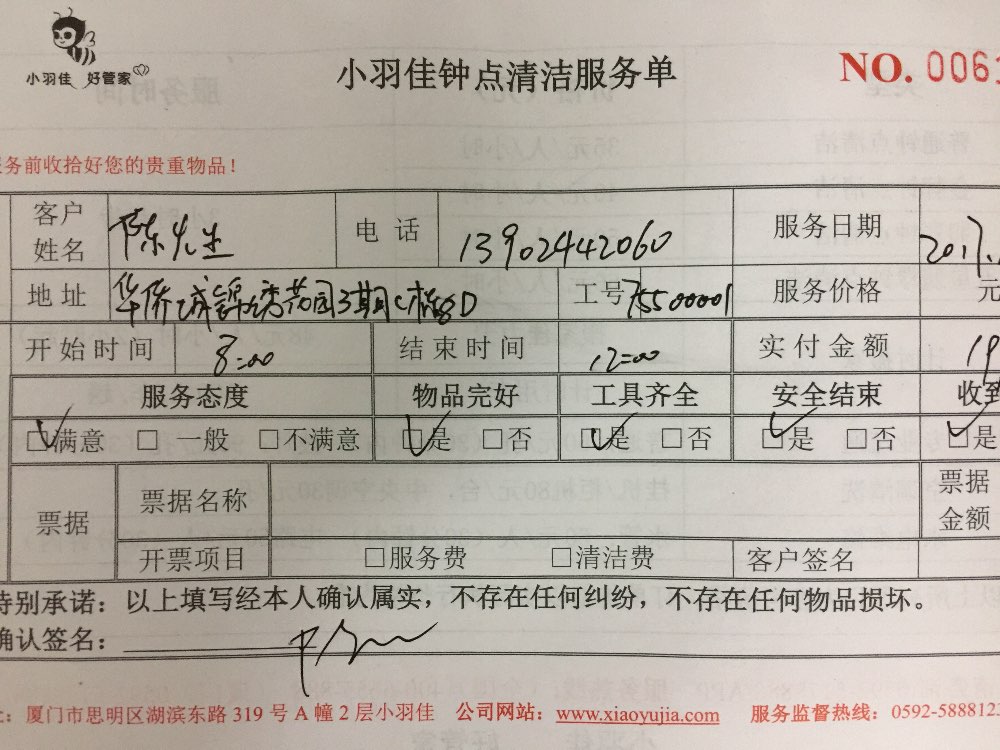 小羽佳 好管家
小羽佳钟点清洁服务单
NO. 0061
务前收拾好您的贵重物品！
客户姓名 陈先生 电话 13902442060 服务日期 2017.
地址 华侨城锦绣花园3期C栋8D 工号 75500001 服务价格 元
开始时间 8:00 结束时间 12:00 实付金额 19
服务态度 物品完好 工具齐全 安全结束 收到
☑满意 □一般 □不满意 ☑是 □否 ☑是 □否 ☑是 □否 ☑是
票据 票据名称 票据金额
开票项目 □服务费 □清洁费 客户签名
特别承诺：以上填写经本人确认属实，不存在任何纠纷，不存在任何物品损坏。
确认签名：
：厦门市思明区湖滨东路 319 号 A 幢 2 层小羽佳 公司网站：www.xiaoyujia.com 服务监督热线：0592-5888123